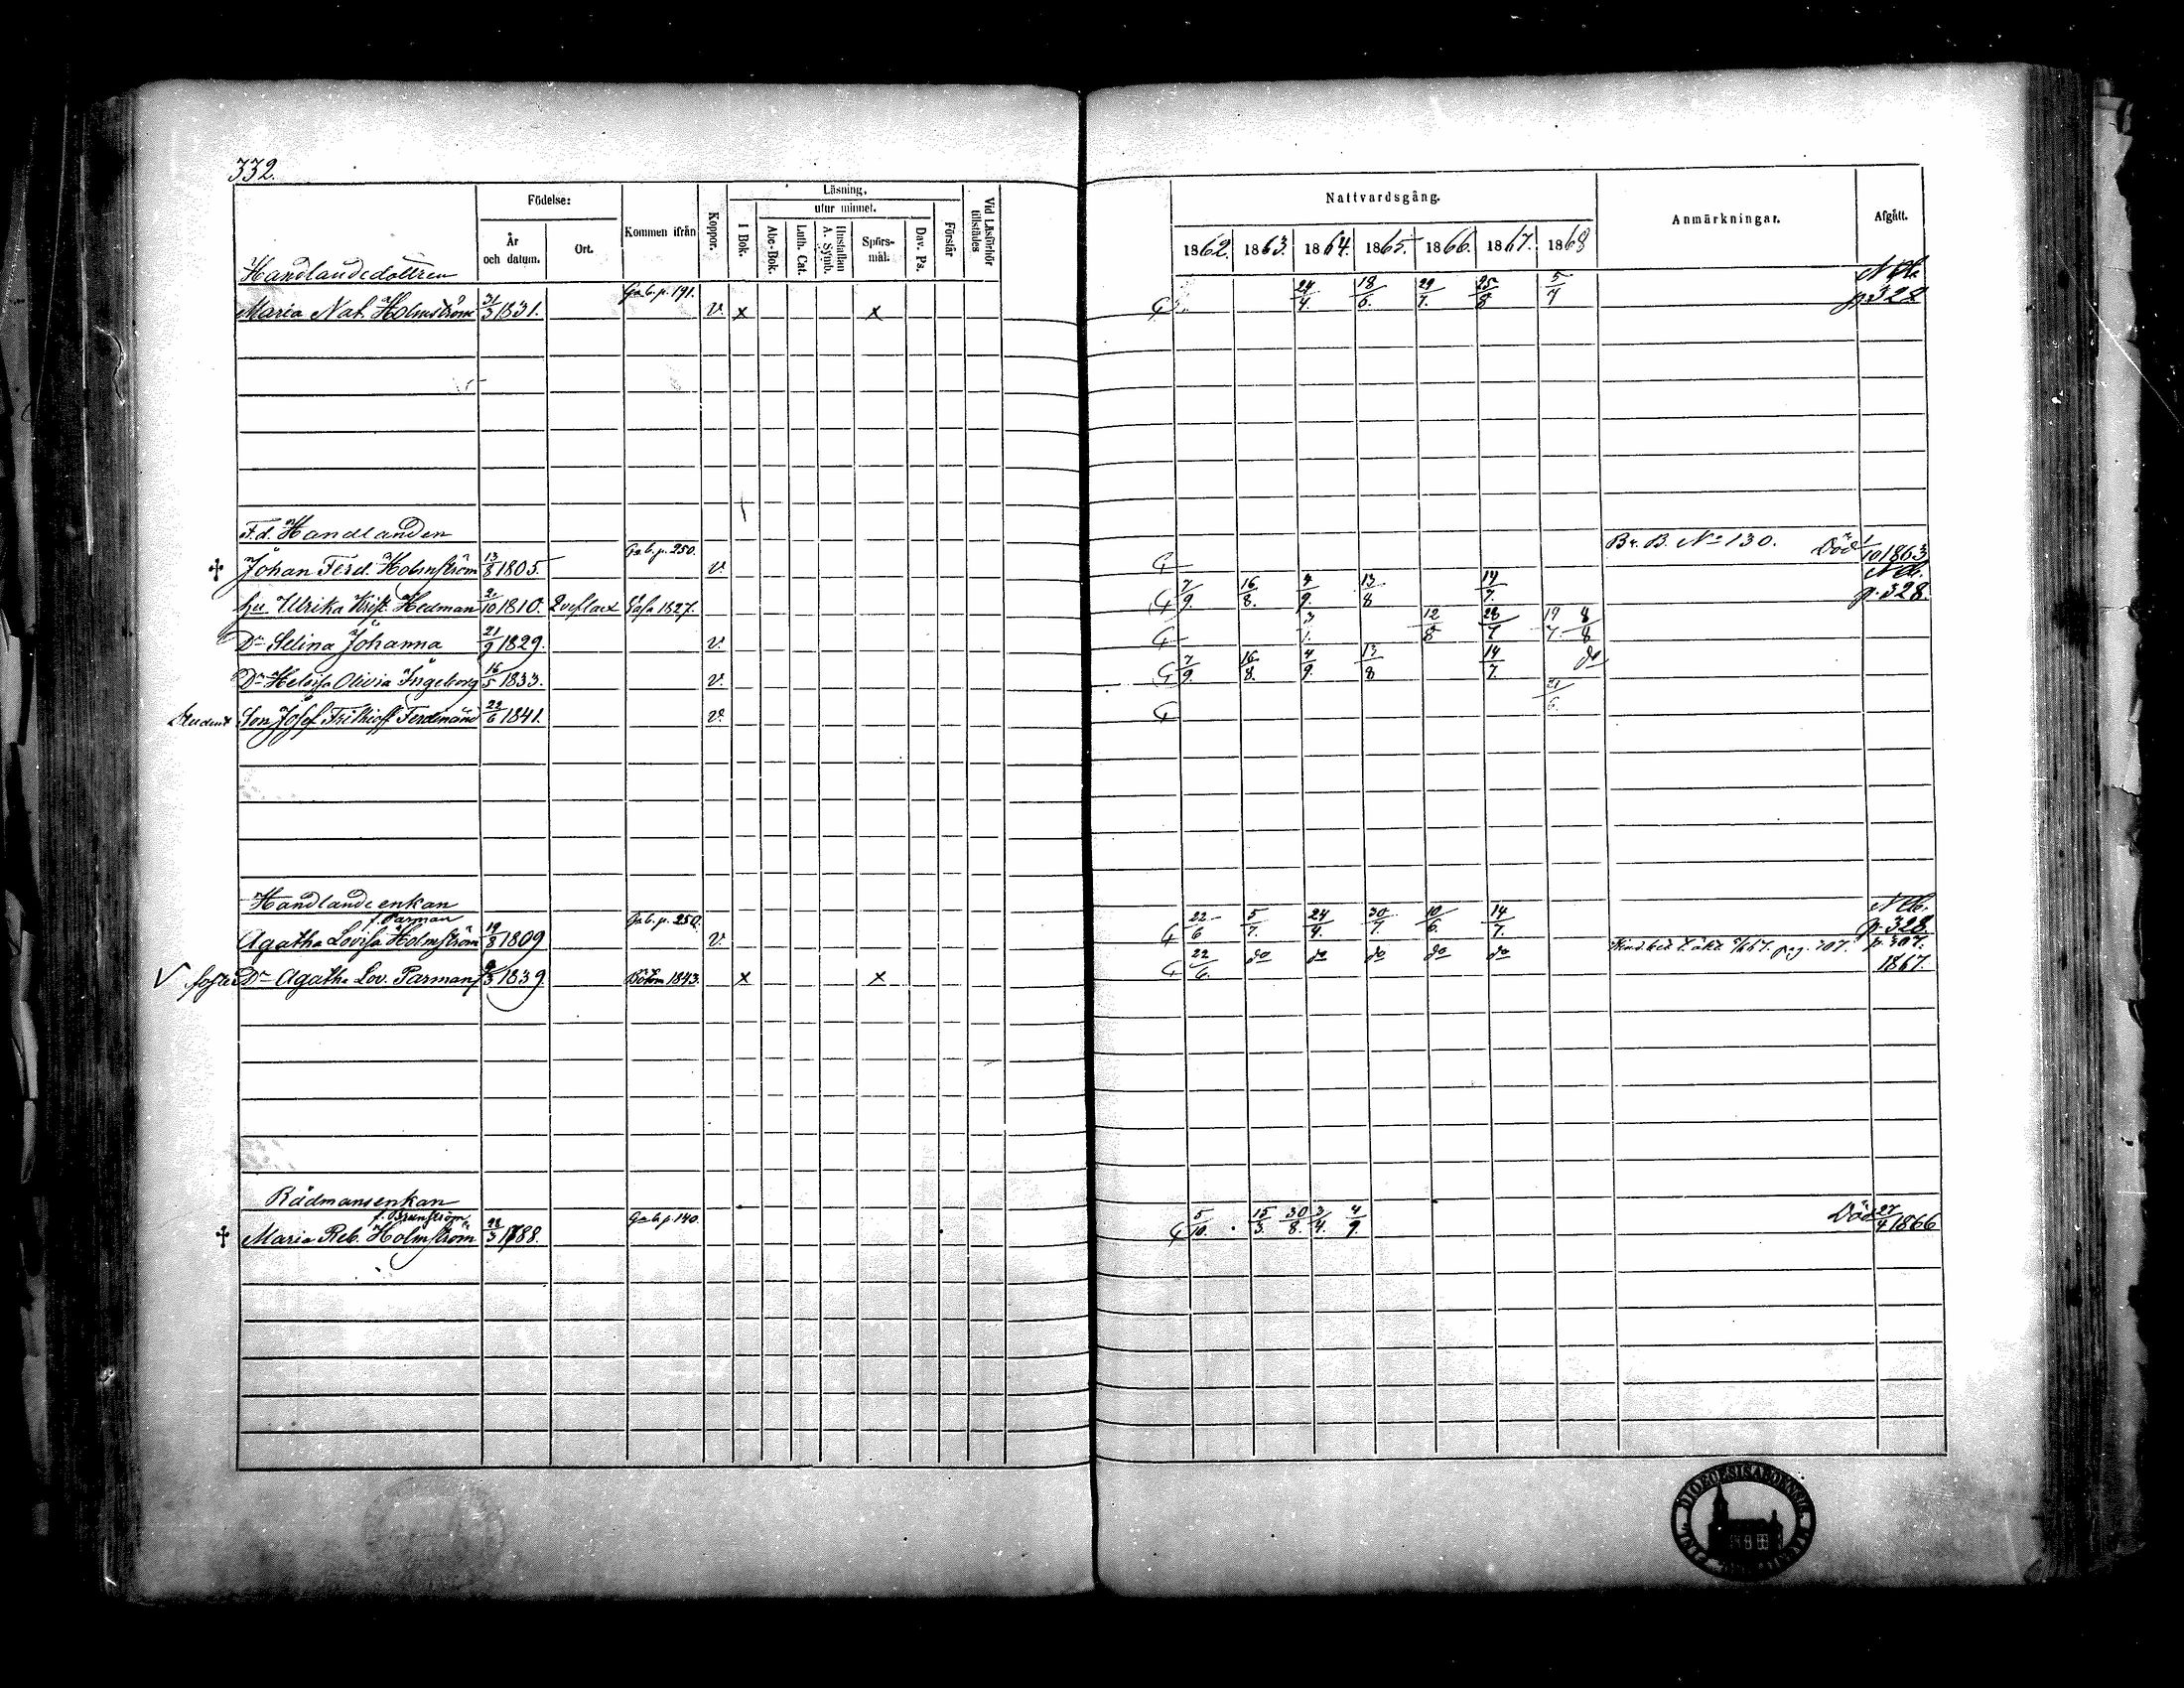 332.
Födelse: Kommen ifrån Koppor. Läsning. Vid Läsförhör tillstädes
År och datum. Ort. I Bok. utur minnet. Förstår
Abc-Bok. Luth. Cat. Hustaflan A. Symb. Spörs-mål. Dav. Ps.
Nattvardsgång. Anmärkningar. Afgått.
1862. 1863. 1864. 1865. 1866. 1867. 1868
Handlandedottren
Maria Nat. Holmström 31/3 1831. Gab. p. 191. v. x x 24/4. 18/6. 29/7. 25/8 5/7 p. 328
F.d. Handlanden
Johan Ferd. Holmström 13/8 1805. Gab. p. 250. v. Br. B. No 130. Död 1/10 1863
hu. Ulrika Krist. Hedman 2/10 1810. 1827. 7/9. 16/8. 4/9. 13/8 14/7. p. 328.
Dr Selina Johanna 21/9 1829. v. 3/1. 12/8 28/7 19/7 8/8
Dr Heloisa Olivia Ingeborg 16/5 1833. v. 7/9. 16/8. 4/9. 13/8 14/7. do
21/6.
Student Son Josef Frithioff Ferdinand 23/6 1841. v.
Handlandeenkan
f. Parman
Agatha Lovisa Holmström 19/8 1809 Gab. p. 250. v. 22/6 5/7. 24/4. 30/7. 10/6. 14/7. p. 328.
V foster Dr Agatha Lov. Parman 1839. 1843. x x 22/6. do do do do do pag. 707. p. 307. 1867.
Rådmansenkan
f. Brunström
Maria Reb. Holmström 28/3 1788. Gab. p. 140. 5/10. 15/3. 30/8. 3/4. 4/9. Död 27/4 1866
DIOECESIS ABOENSIS